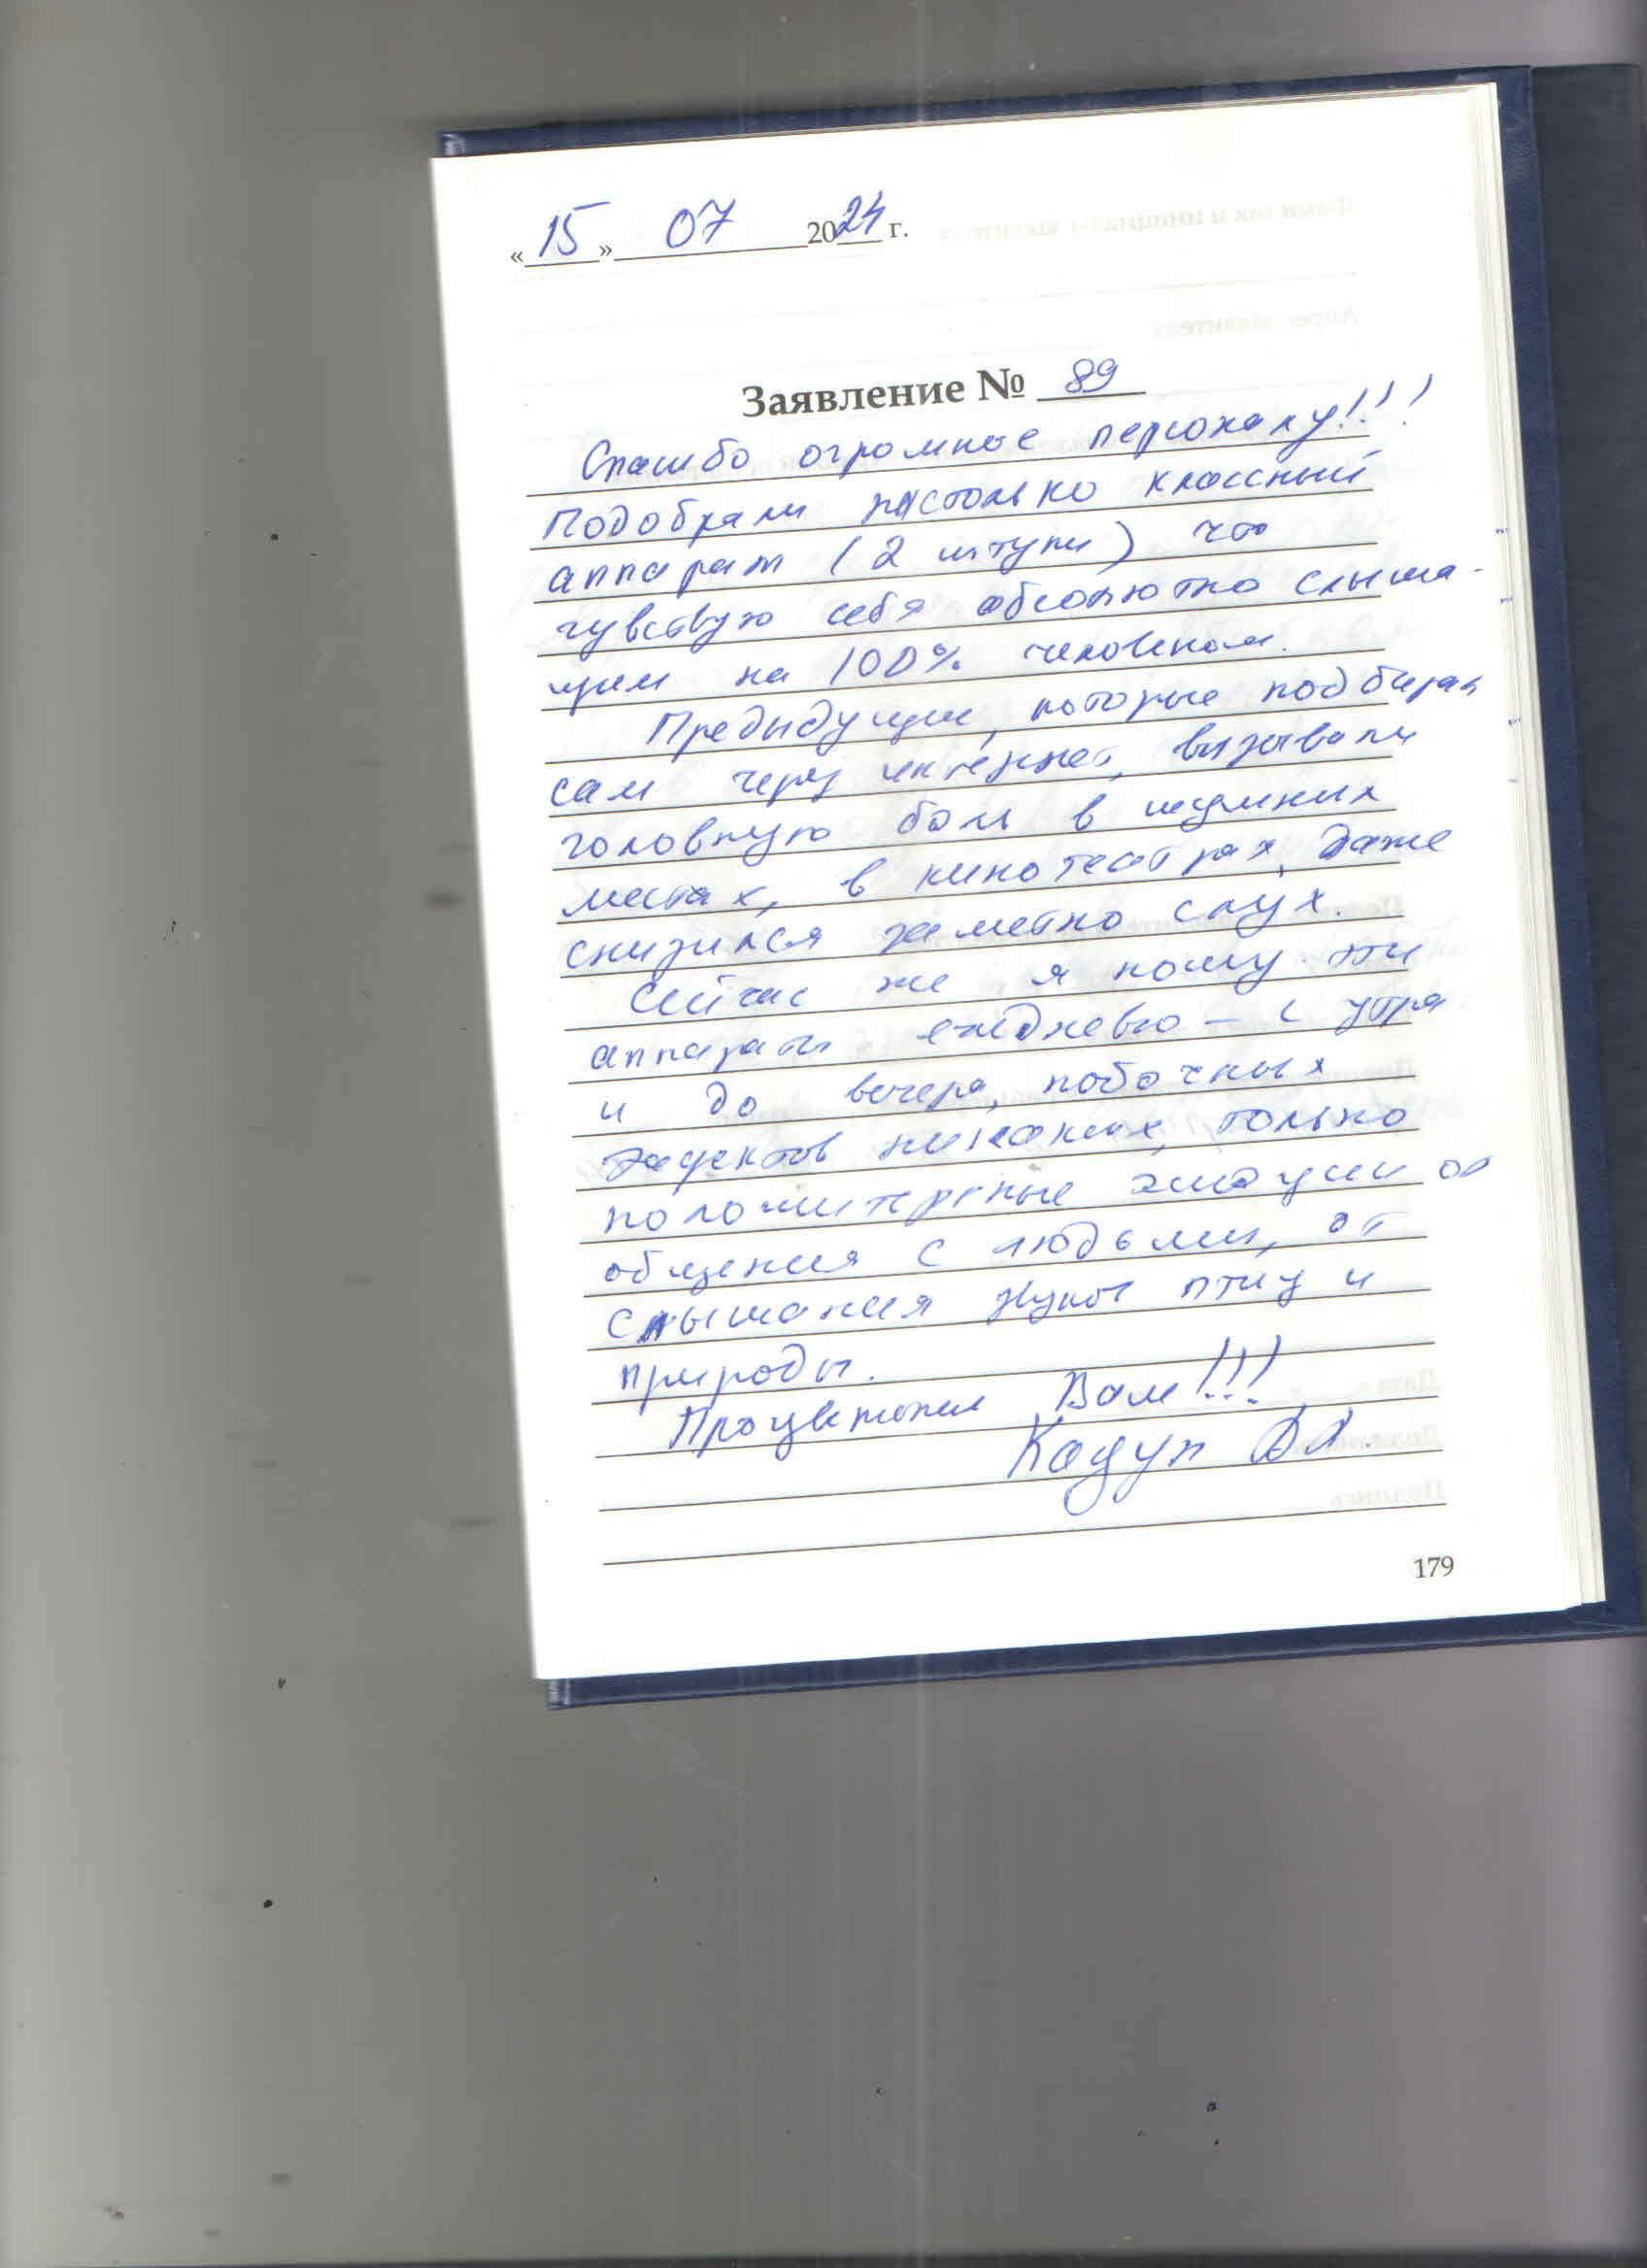 «15» 07 2024 г.
Заявление № 89
Спасибо огромное персоналу!!!
Подобрали настолько классный
аппарат (2 штуки) что
чувствую себя абсолютно слыша-
щим на 100% человеком.
Предыдущие, которые подбирал
сам через интернет, вызывали
головную боль в шумных
местах, в кинотеатрах, даже
снизился заметно слух.
Сейчас же я ношу эти
аппараты ежедневно – с утра
и до вечера, побочных
эффектов никаких, только
положительные эмоции от
общения с людьми, от
слышания звуков птиц и
природы.
Процветания Вам!!!
Кадун
179